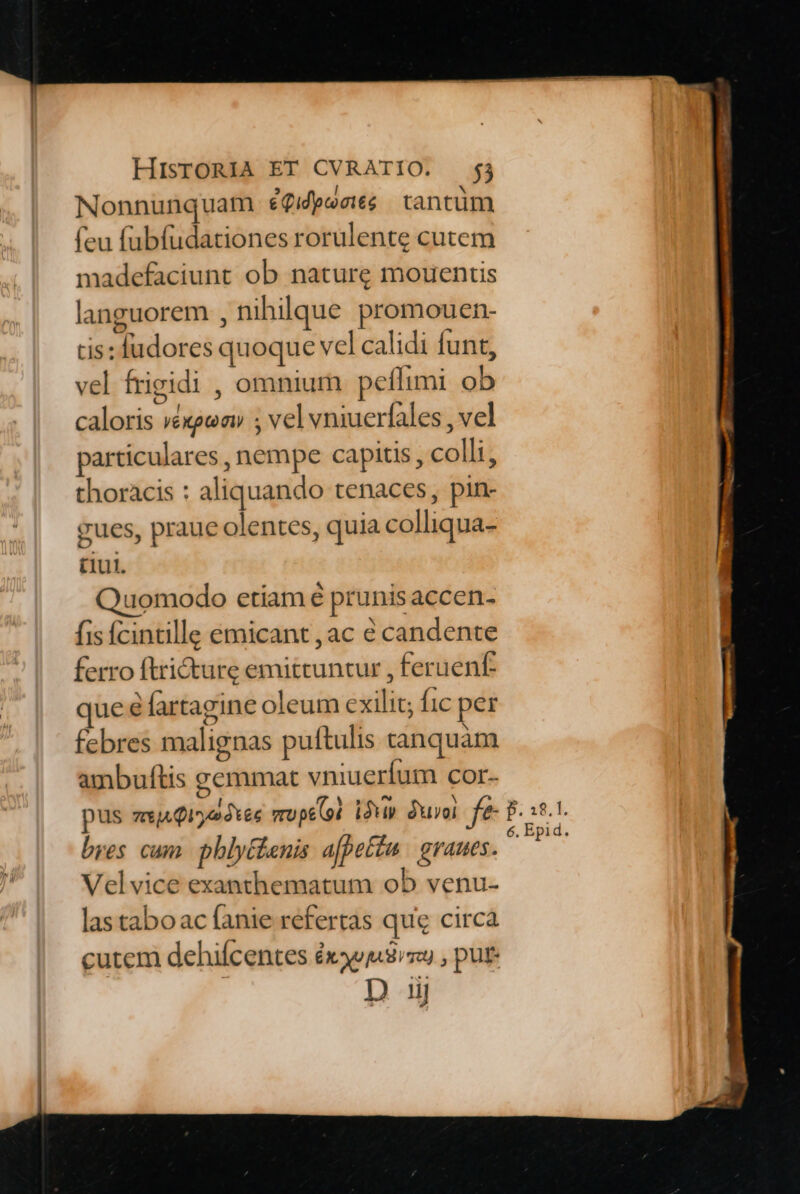 HISTORIA ET CVRATIO. 53
Nonnunquam ἐφιδρώσιες tantùm
ſeu ſubſudationes rorulentę cutem
madefaciunt ob naturę mouentis
languorem , nihilque promouen-
tis: ſudores quoque vel calidi ſunt,
vel frigidi , omnium peſſimi ob
caloris νέκρωσιν ; vel vniuerſales , vel
particulares , nempe capitis , colli,
thoràcis : aliquando tenaces , pin-
gues, praue olentes, quia colliqua-
tiui.
Quomodo etiam è prunis accen-
ſis ſcintillę emicant , ac è candente
ferro ſtricturę emittuntur , feruenſ-
que è ſartagine oleum exilit; ſic per
febres malignas puſtulis tanquàm
ambuſtis gemmat vniuerſum cor-
pus πεμφιγώδεες πυρετοὶ ἰδεῖν δεινοὶ fe- β. 28. 1.
6. Epid.
bres cum phlyctænis aſpectu graues.
Vel vice exanthematum ob venu-
las tabo ac ſanie refertas quę circà
cutem dehiſcentes ἐκχυμοῦνται , pur-
D iij